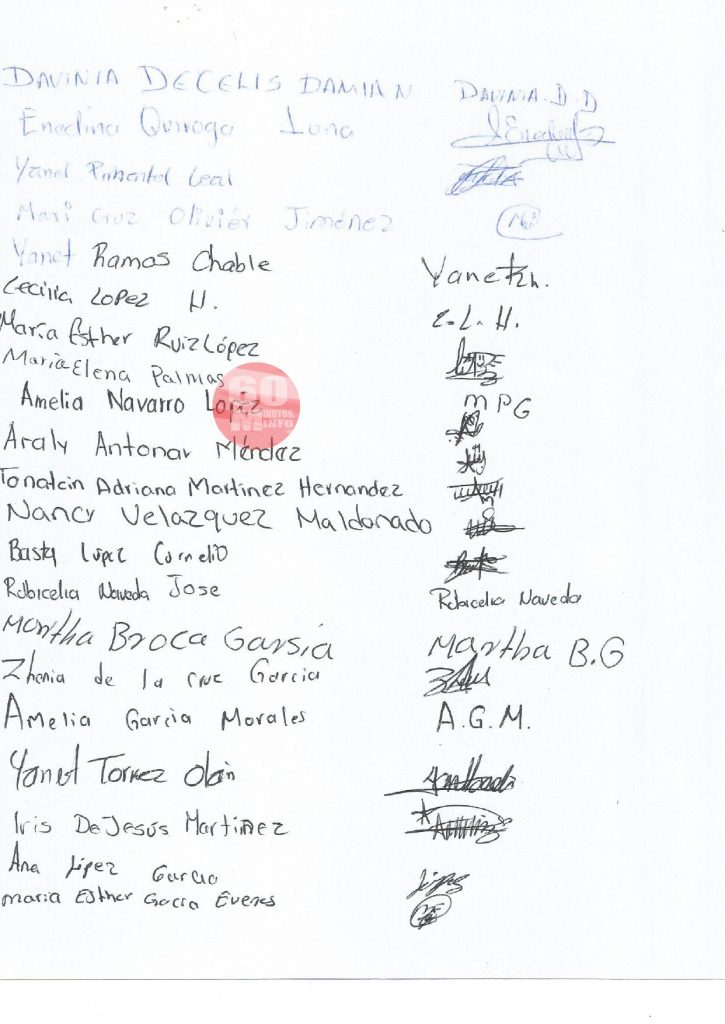 DAVINIA DECELIS DAMIAN DAVINIA D.D
Enedina Quiroga Luna
Yanet Pimentel Leal
Mari Cruz Olivier Jiménez
Yanet Ramos Chable Yanet Rh.
Cecilia Lopez H. C.L.H.
María Esther Ruiz López
Maria Elena Palmas MPG
Amelia Navarro Lopez
60 MINUTOS.INFO
Araly Antonar Méndez
Adriana Martinez Hernandez
Nancy Velazquez Maldonado
López Cornelio
Rubicelia Naveda Jose Rubicelia Naveda
Martha Broca Garsia Martha B.G
Zhenia de la cruz Garcia
Amelia Garcia Morales A.G.M.
Yanet Torrez Olan
Iris De Jesús Martinez
Ana López Garcia López
maria Esther